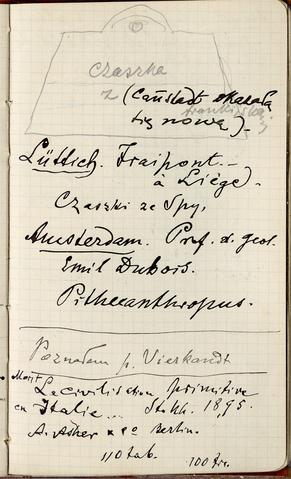 czaszka
z (Canstadt okazała
się nową).
Lüttich. Fraipont –
à Liège.
Czaszki ze Spy,
Amsterdam. Prof. d. geol.
Emil Dubois.
Pithecanthropus.
Poznałem p. Vierkandt
La civilisation primitive
en Italie... Stokh. 1895.
A. Asher & Co Berlin.
110 tab. 100 fr.